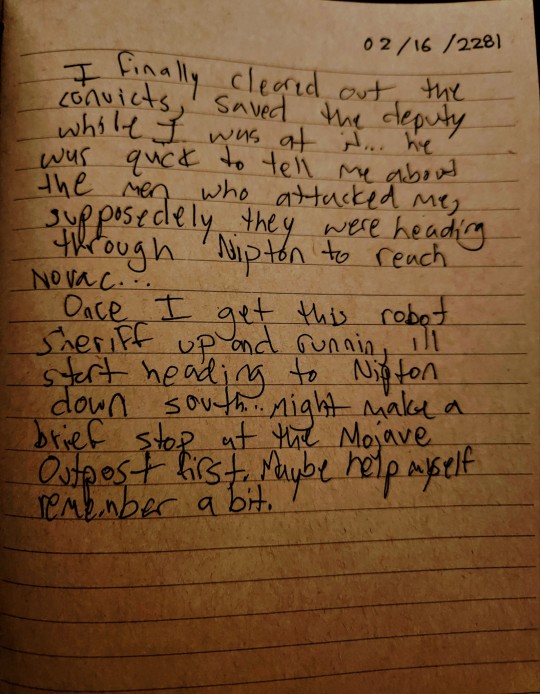 02/16/2281
I finally cleared out the
convicts, saved the deputy
while I was at it... he
was quck to tell me about
the men who attacked me,
supposedely they were heading
through Nipton to reach
Novac...
Once I get this robot
sheriff up and runnin, ill
start heading to Nipton
down south... might make a
brief stop at the Mojave
Outpost first. Maybe help myself
remember a bit.